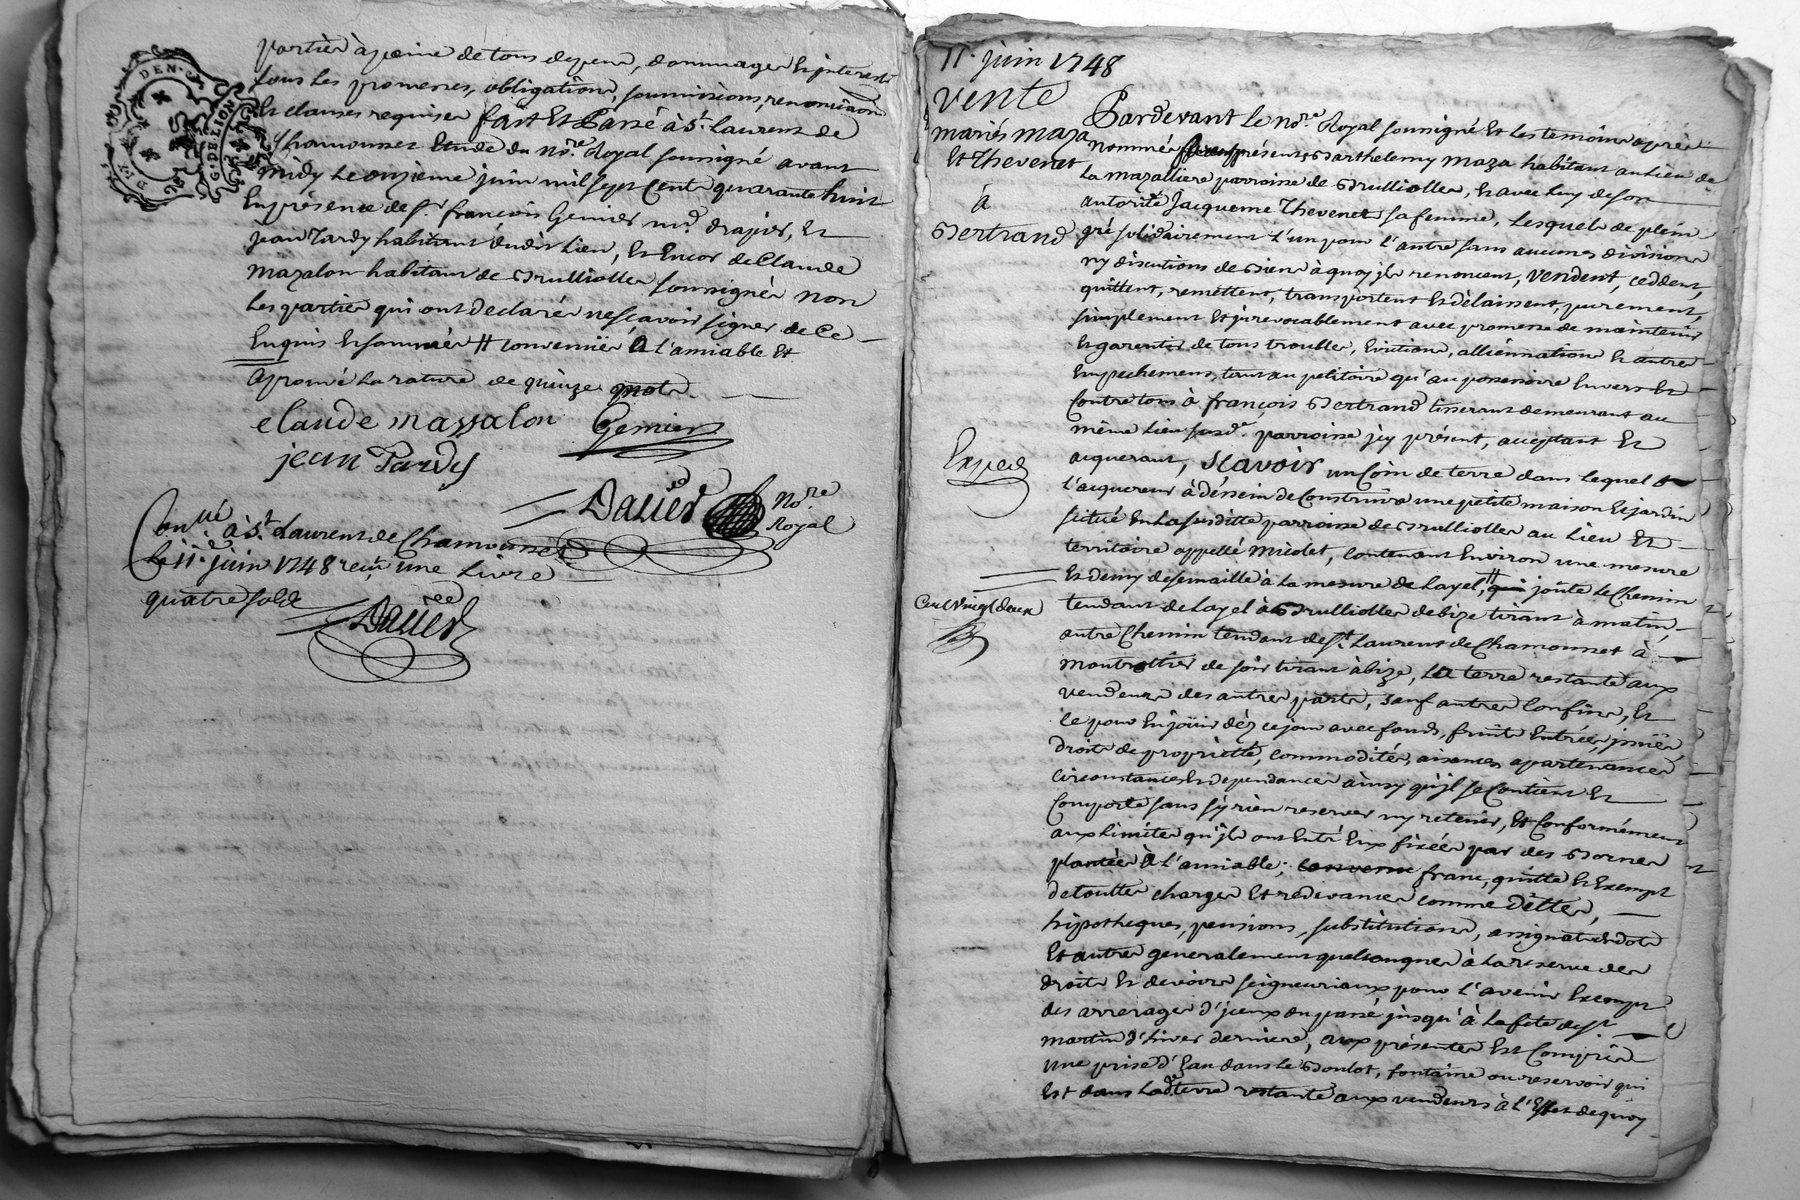 parties à peine de tous depens, dommages et interests
sous les promesses, obligations, soumissions, renonciations
et clauses requises fait et Passé à St. Laurent de
Chamousset Etude du Nore. Royal soussigné avant
midy le onzieme juin mil sept cents quarante huit
En présence de Sr. françois Gemier md. drapier, et
jean Tardy habitant dudit Lieu, Et Encor de Claude
mazalon habitant de Brulliolles soussignés non
les parties qui ont declarés ne sçavoir signer de Ce
Enquis Et sommés # convenuës A l'amiable et
aprouvé la rature de quinze mots.
claude massalon Gemier
jean Tardy
Dalier Nore. Royal
Conllé à St. Laurent de Chamousset
le 11e. juin 1748 reçu une Livre
quatre sols
Dalier
11e. juin 1748
vente
mariés maza
Et Thevenet
à
Bertrand
Exped
Cent vingt deux
Pardevant le Nore. Royal soussigné et les temoins après
nommés présents Barthelemy maza habitant au Lieu de
la mazalliere parroisse de Brulliolles, et avec luy de son
autorité Jacqueme Thevenet sa femme, Lesquels de plein
gré solidairement l'un pour l'autre sans aucunes divisions
ny discutions de biens à quoy ils renoncent, vendent, ceddent,
quittent, remettent, transportent et délaissent, purement,
simplement et irrevocablement avec promesse de maintenir
et garentir de tous troubles, Evictions, alliénnations et autres
Empechemens, tant au petitoire qu'au possessoire Envers et
Contre tous à françois Bertrand tisserant demeurant au
même lieu susd. parroisse icy présent, acceptant et
acquerant, Scavoir un Coin de terre dans lequel
l'acquereur à dessein de Construire une petite maison et jardin
situé En la susditte parroisse de Brulliolles au Lieu et
territoire appellé micolet, contenant Environ une mesure
et demy de semaille à la mesure de layel, # joute le Chemin
tendant de layel à Brulliolles de bize tirant à matin,
autre Chemin tendant de St. Laurent de Chamousset à
montrottier de soir tirant à bize, La terre restante aux
vendeurs des autres parts, sauf autres Confins, Et
ce pour En joüir dèz ce jour avec fonds, fruits Entrées, issuës,
droits de proprietté, commodités, aisances apartenances
circonstances et dependances ainsy qu'il se Contient et
Comporte sans s'y rien reserver ny retenir, Et Conformément
aux limites qu'ils ont Entre Eux fixées par des Bornes
plantées A l'amiable; convenue franc, quitte et Exempt
de touttes charges Et redevances comme Dettes,
hipotheques, pensions, substitutions, assignats de dots
Et autres generalement quelconques à la reserve des
droits et devoirs seigneuriaux pour l'avenir Exempt
des arrerages d'jceux du passé jusqu'à la fete de St.
martin d'hiver derniere, aux présentes Est Compris
une prise d'Eau dans le Boulot, fontaine ou reservoir qui
Est dans lade. terre restante aux vendeurs à l'Effet de quoy